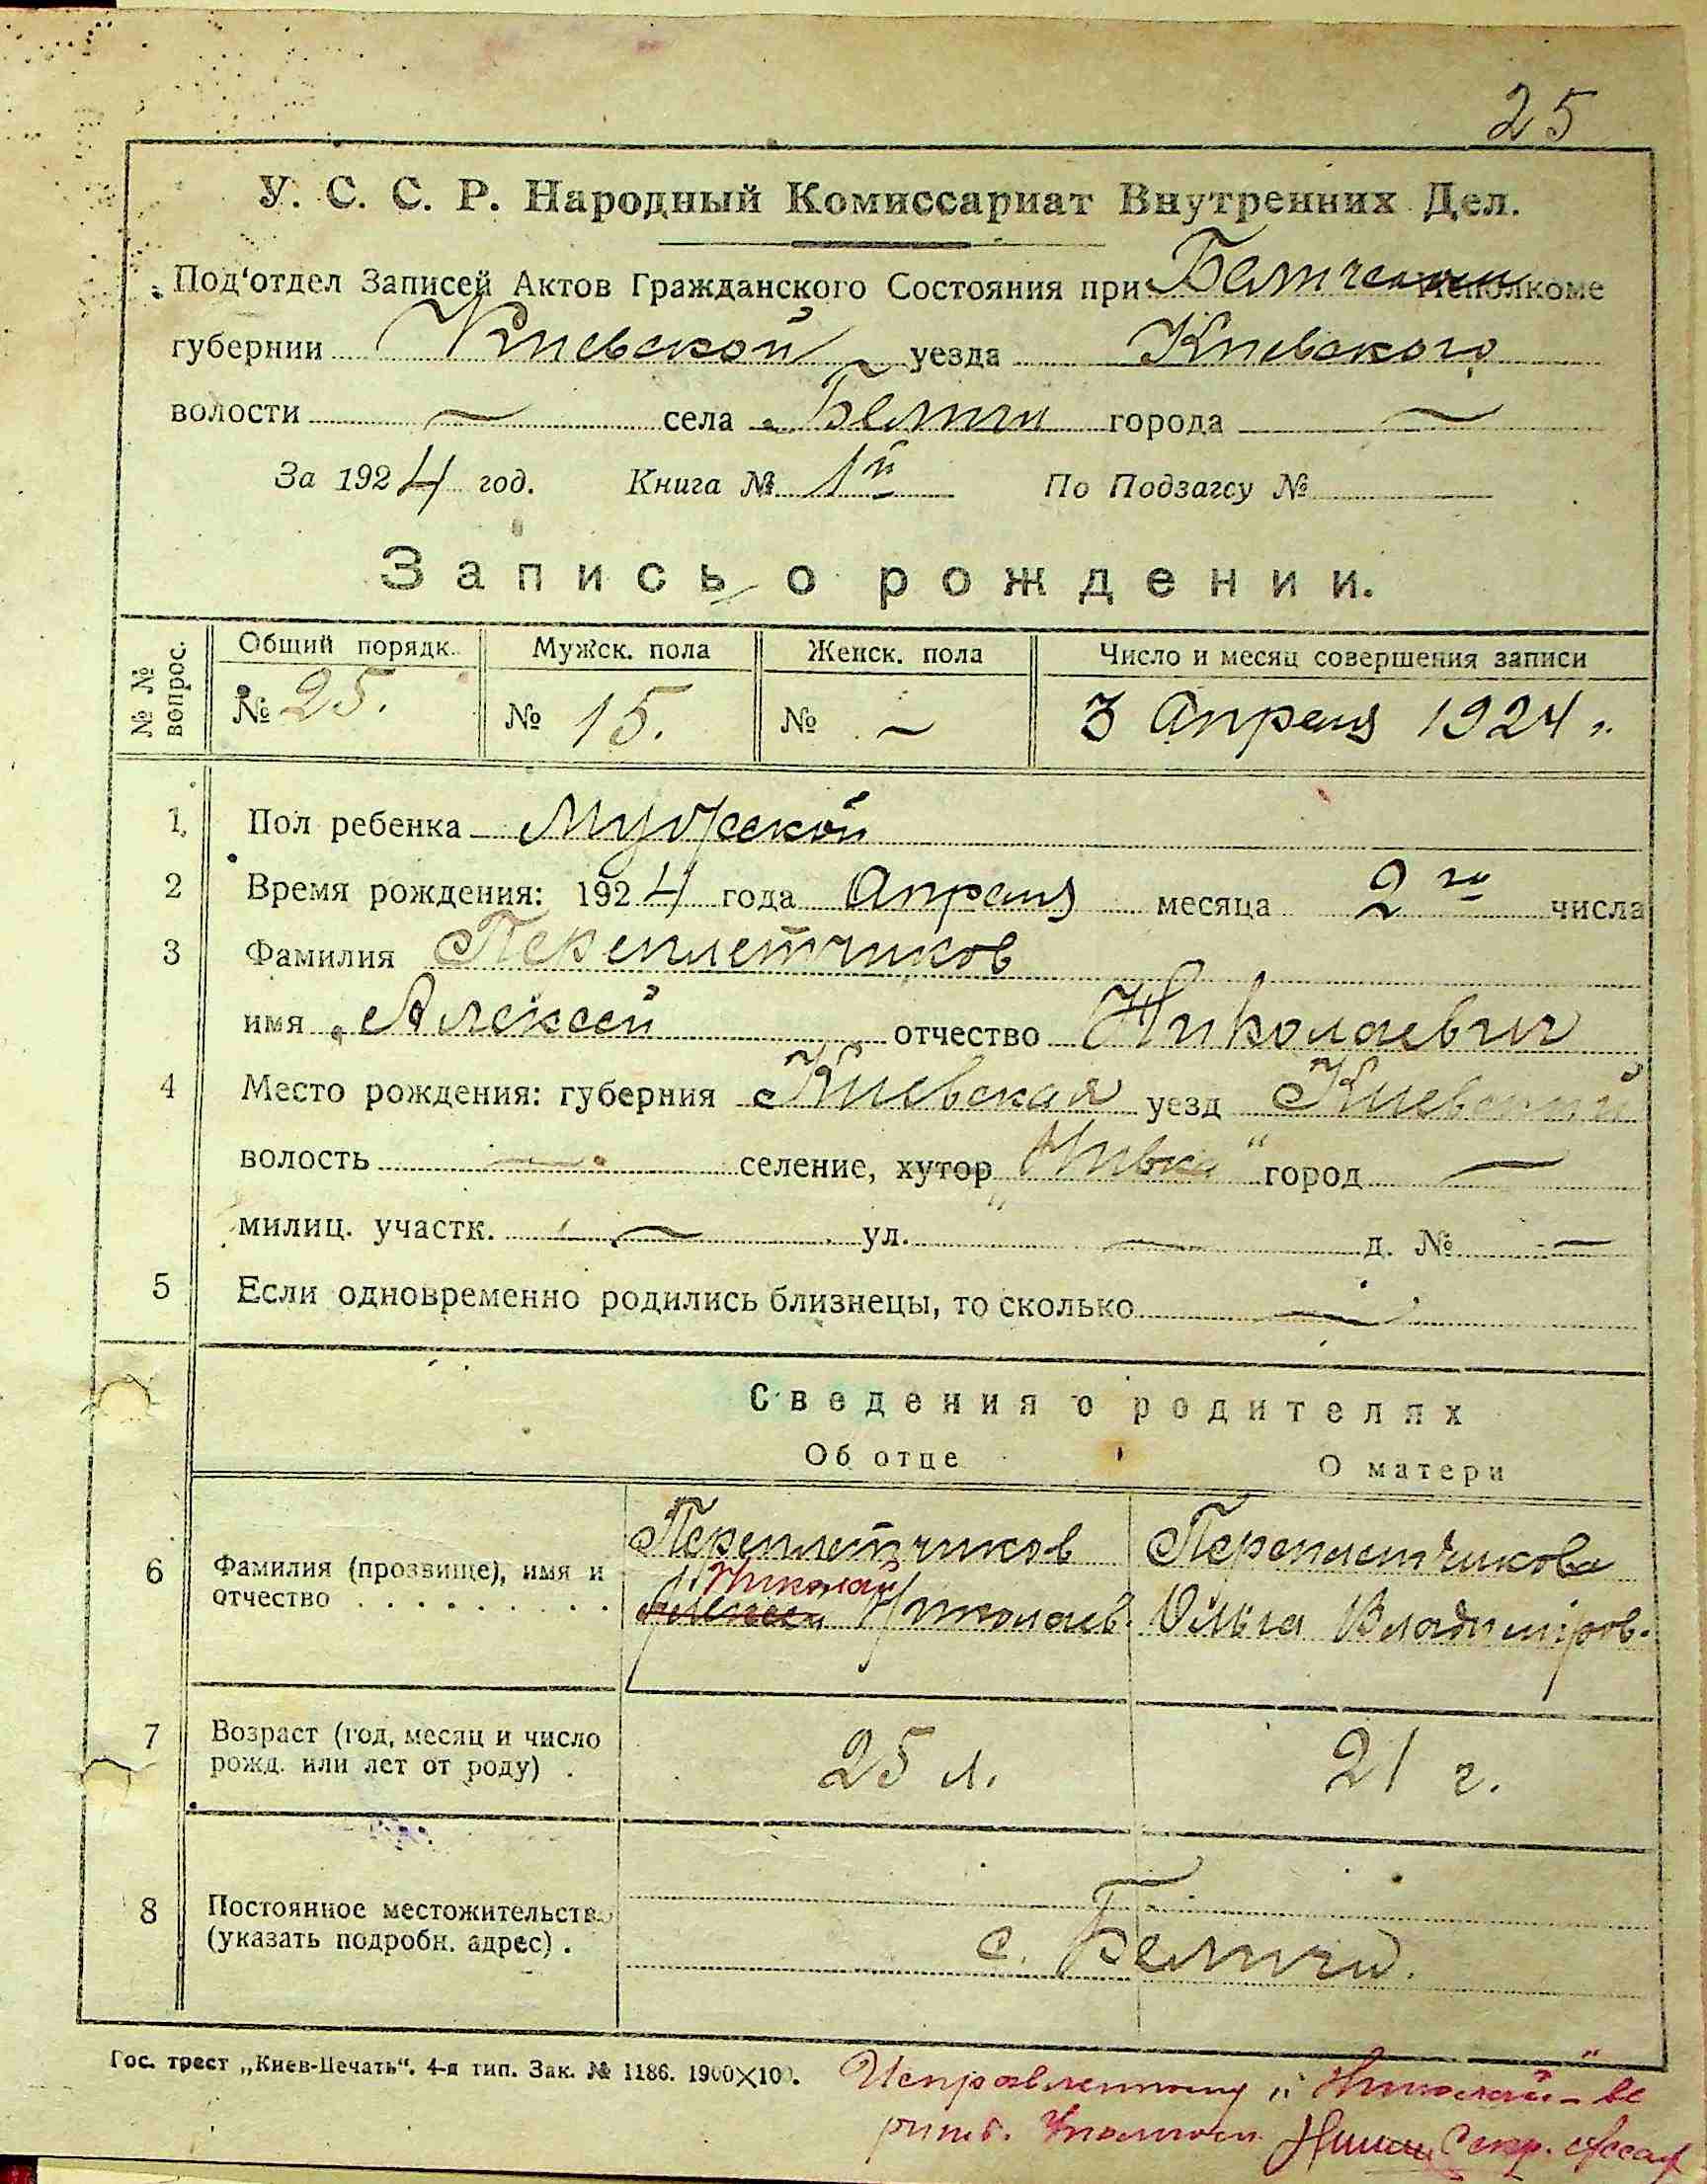 25
У. С. С. Р. Народный Комиссариат Внутренних Дел.
Под‘отдел Записей Актов Гражданского Состояния при Исполкоме
губернии Киевской уезда Киевского
волости — села Беличи города —
За 1924 год. Книга № 1й По Подзагсу №
Запись о рождении.
№ № вопрос.
Общий порядк. Мужск. пола Женск. пола Число и месяц совершения записи
№ 25. № 15. № — 3 Апреля 1924 г.
1. Пол ребенка Мужской
2 Время рождения: 1924 года Апреля месяца 2го числа
3 Фамилия Переплетчиков
имя Алексей отчество Николаевич
4 Место рождения: губерния Киевская уезд Киевский
волость — селение, хутор „Нивка“ город —
милиц. участк. — ул. — д. № —
5 Если одновременно родились близнецы, то сколько —
Сведения о родителях
Об отце О матери
Переплетчиков Переплетчикова
6 Фамилия (прозвище), имя и
Николай
отчество . . . . . . . . . Алексей Николаев. Ольга Владимиров.
7 Возраст (год, месяц и число
рожд. или лет от роду) . 25 л. 21 г.
8 Постоянное местожительство
(указать подробн. адрес) . с. Беличи.
Гос. трест „Киев-Печать“. 4-я тип. Зак. № 1186. 1900×100.
Исправленному „Николай“ – ве
рить. Секр.